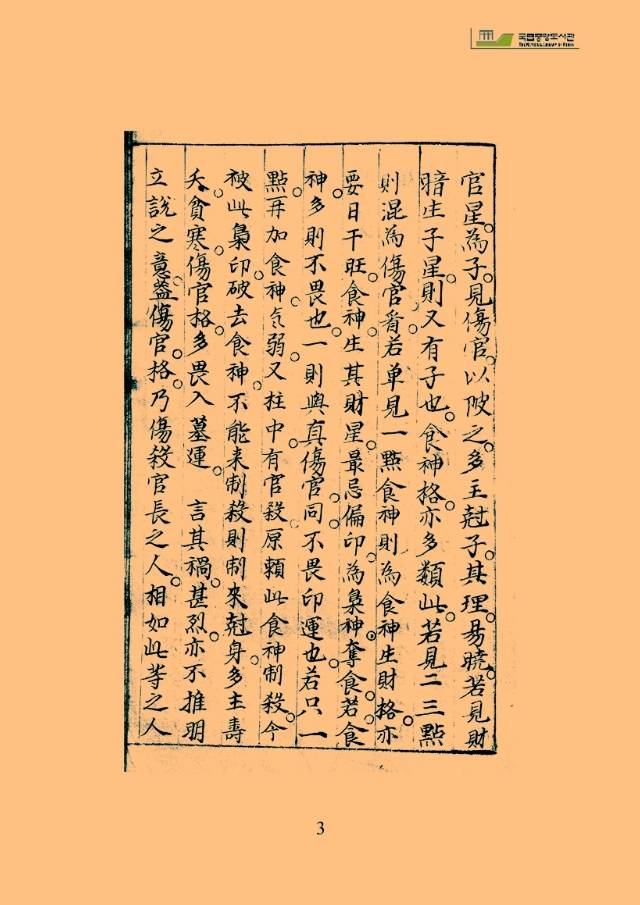 국립중앙도서관
THE NATIONAL LIBRARY OF KOREA
官星為子。見傷官。以陂之。多主尅子。其理易曉。若見財
暗生子星。則又有子也。食神格。亦多類此。若見二三點
則混為傷官看。若单見一點食神。則為食神生財格。亦
要日干旺。食神生其財星。最忌偏印。為梟神奪食。若食
神多則不畏也。一則與真傷官。同不畏印運也。若只一
點。再加食神气弱。又柱中有官殺。原頼此食神制殺。今
被此梟印破去食神。不能来制殺。則制來尅身。多主壽
夭貪寒。傷官格。多畏入墓運 言其禍甚烈。亦不推明
立說之意。盖傷官格。乃傷殺官長之人。相如此等之人
3